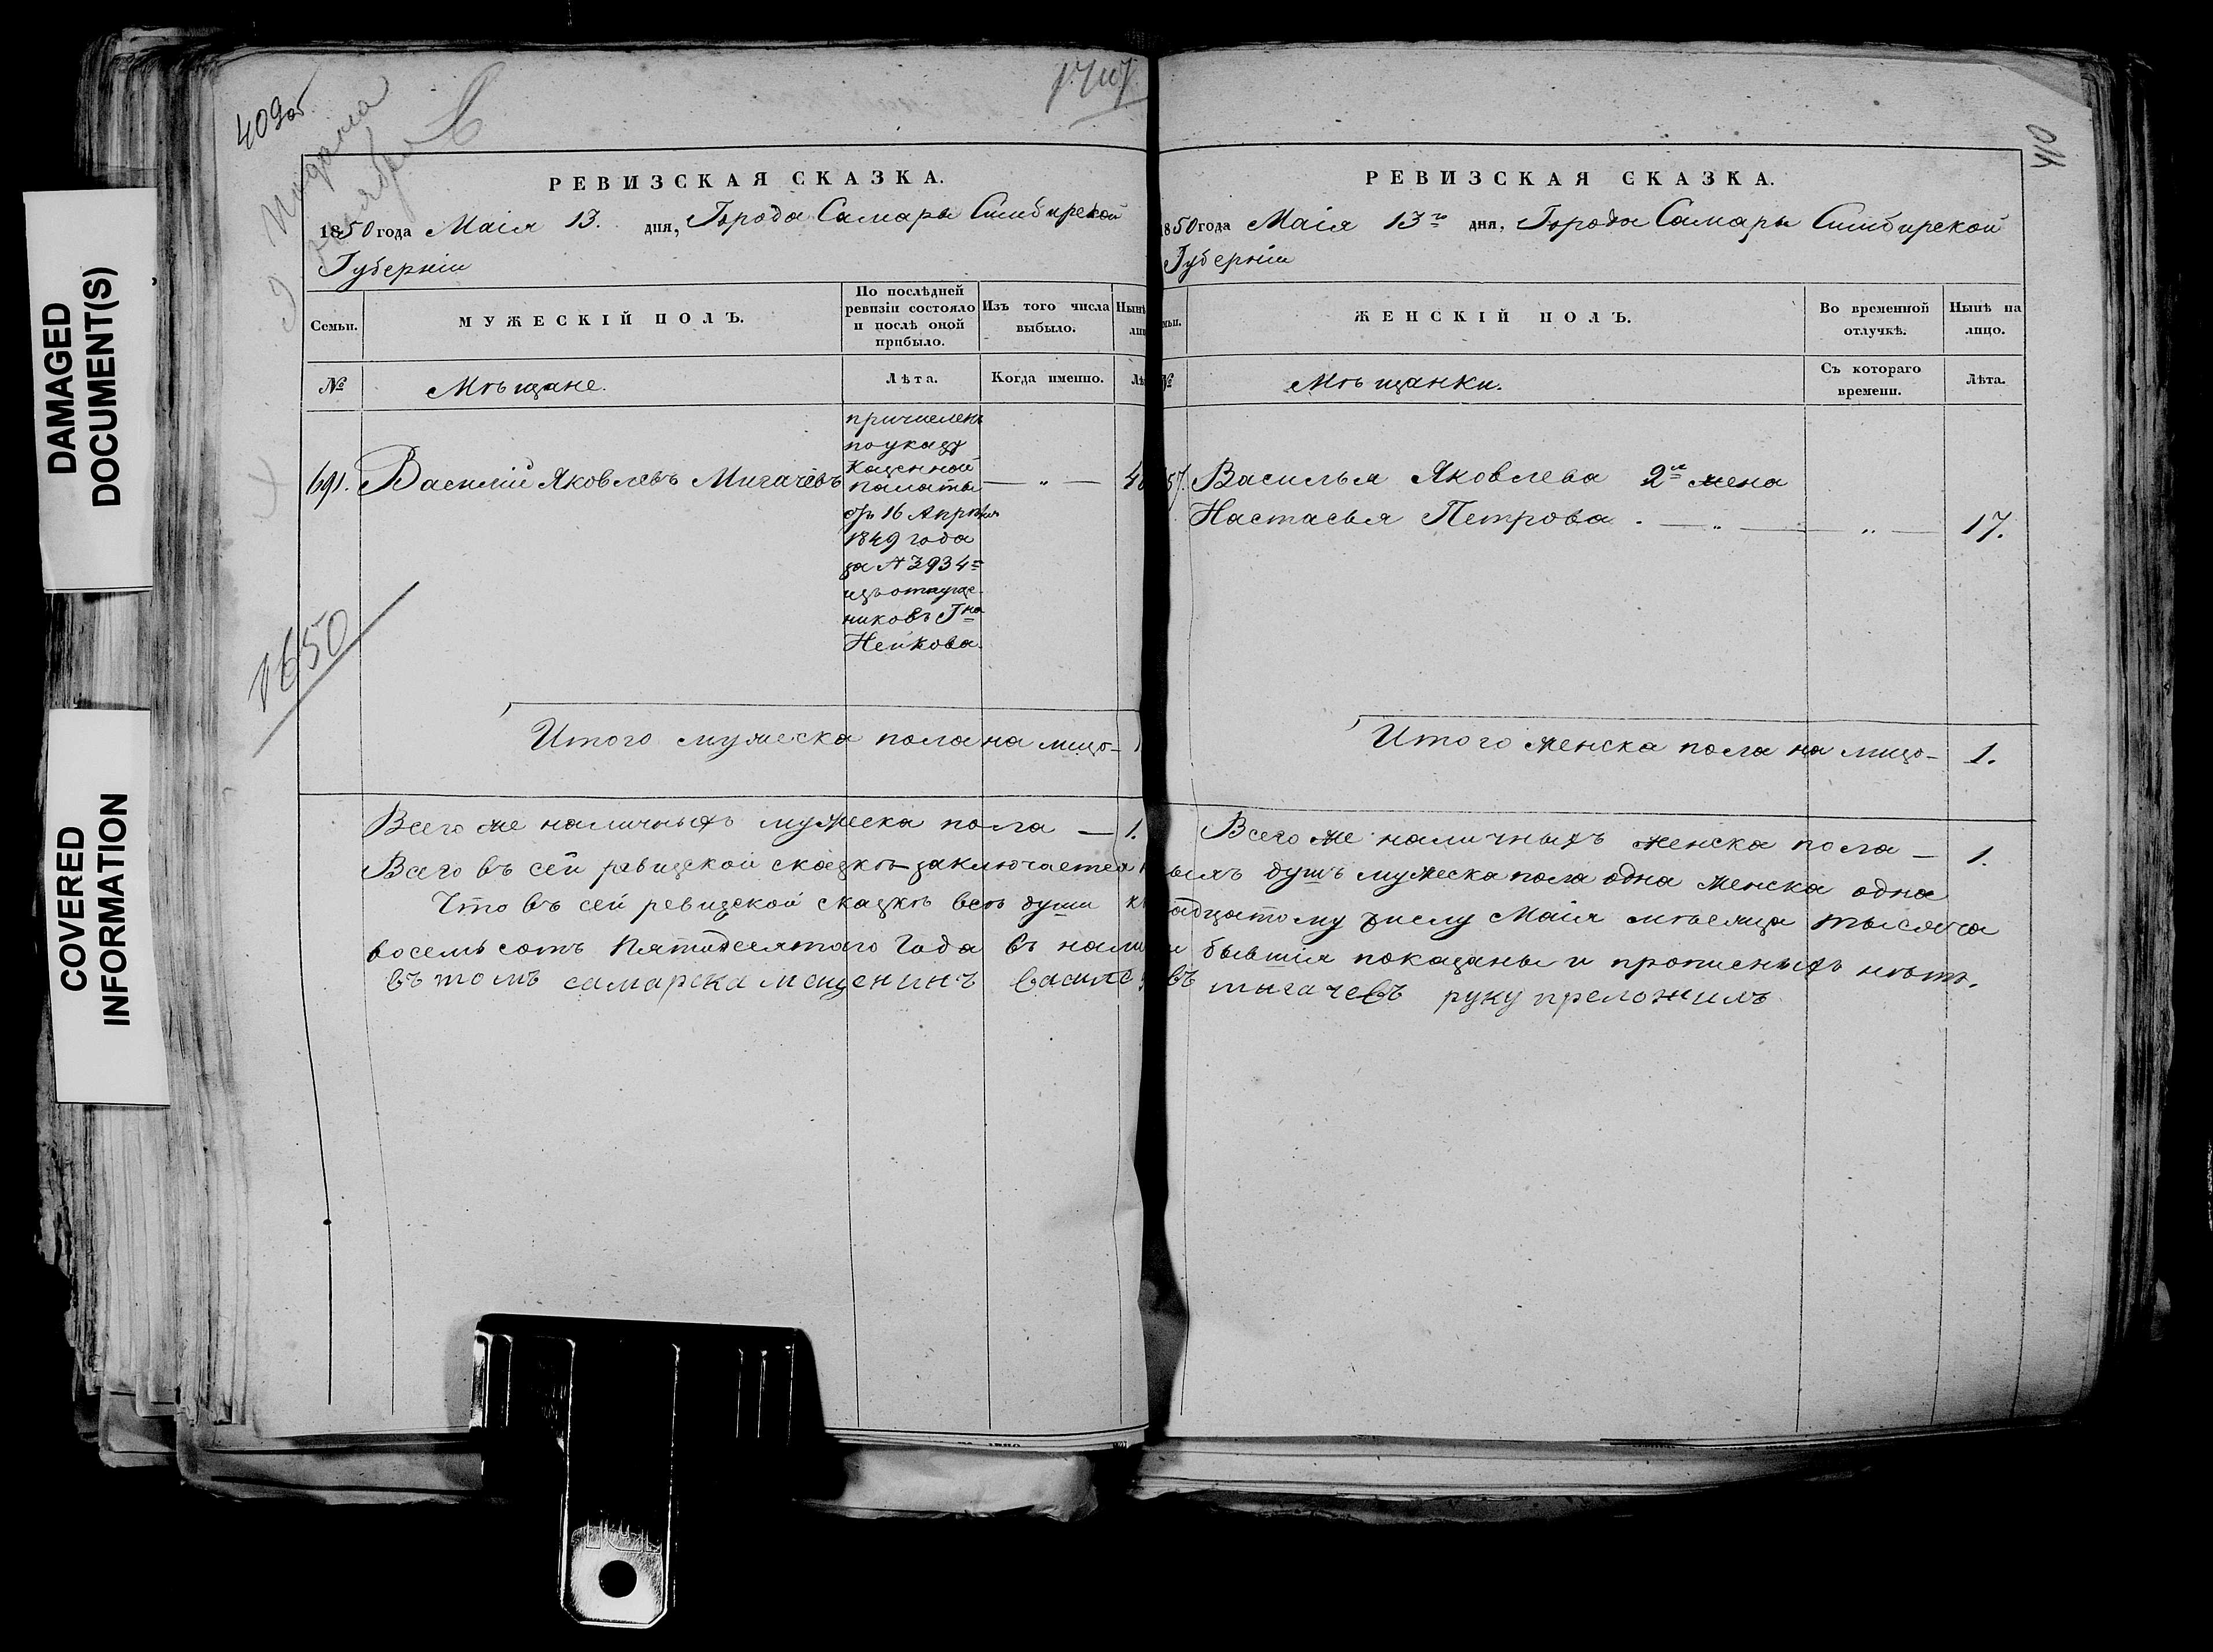 DAMAGED
DOCUMENT(S)
COVERED
INFORMATION
409об
Подана
С
1650
РЕВИЗСКАЯ СКАЗКА.
1850 года Маія 13. дня, Города Самары Симбирской
Губерніи
Семьи.
МУЖЕСКІЙ ПОЛЪ.
По послѣдней
ревизіи состояло
и послѣ оной
прибыло.
Изъ того числа
выбыло.
№
Мѣщане.
Лѣта.
Когда именно.
691. Василій Яковлевъ Мигачевъ
причисленъ
по указу
Казенной
палаты
отъ 16 Апрѣля
1849 года
за № 3934
изъ отпуще
никовъ Гна
Нейкова
— „ —
Итого мужеска пола на лицо —
Всего же наличныхъ мужеска пола — 1.
Всего въ сей ревизской сказкѣ заключается
Что въ сей ревизской сказкѣ всѣ души
восемь сотъ Пятидесятаго Года въ
въ томъ самарска мещенинъ
410
РЕВИЗСКАЯ СКАЗКА.
1850 года Маія 13го дня, Города Самары Симбирской
Губерніи
ЖЕНСКІЙ ПОЛЪ.
Во временной
отлучкѣ.
Нынѣ на
лицо.
№
Мѣщанки.
Съ котораго
времени.
Лѣта.
Василья Яковлева 2я жена
Настасья Петрова. — „ — „ — 17.
Итого женска пола на лицо — 1.
Всего же наличныхъ женска пола — 1.
душъ мужеска пола одна женска одна
числу Маія мѣсяца тысяча
бывшія показаны и прописныхъ нѣтъ.
мыгачевъ руку преложилъ